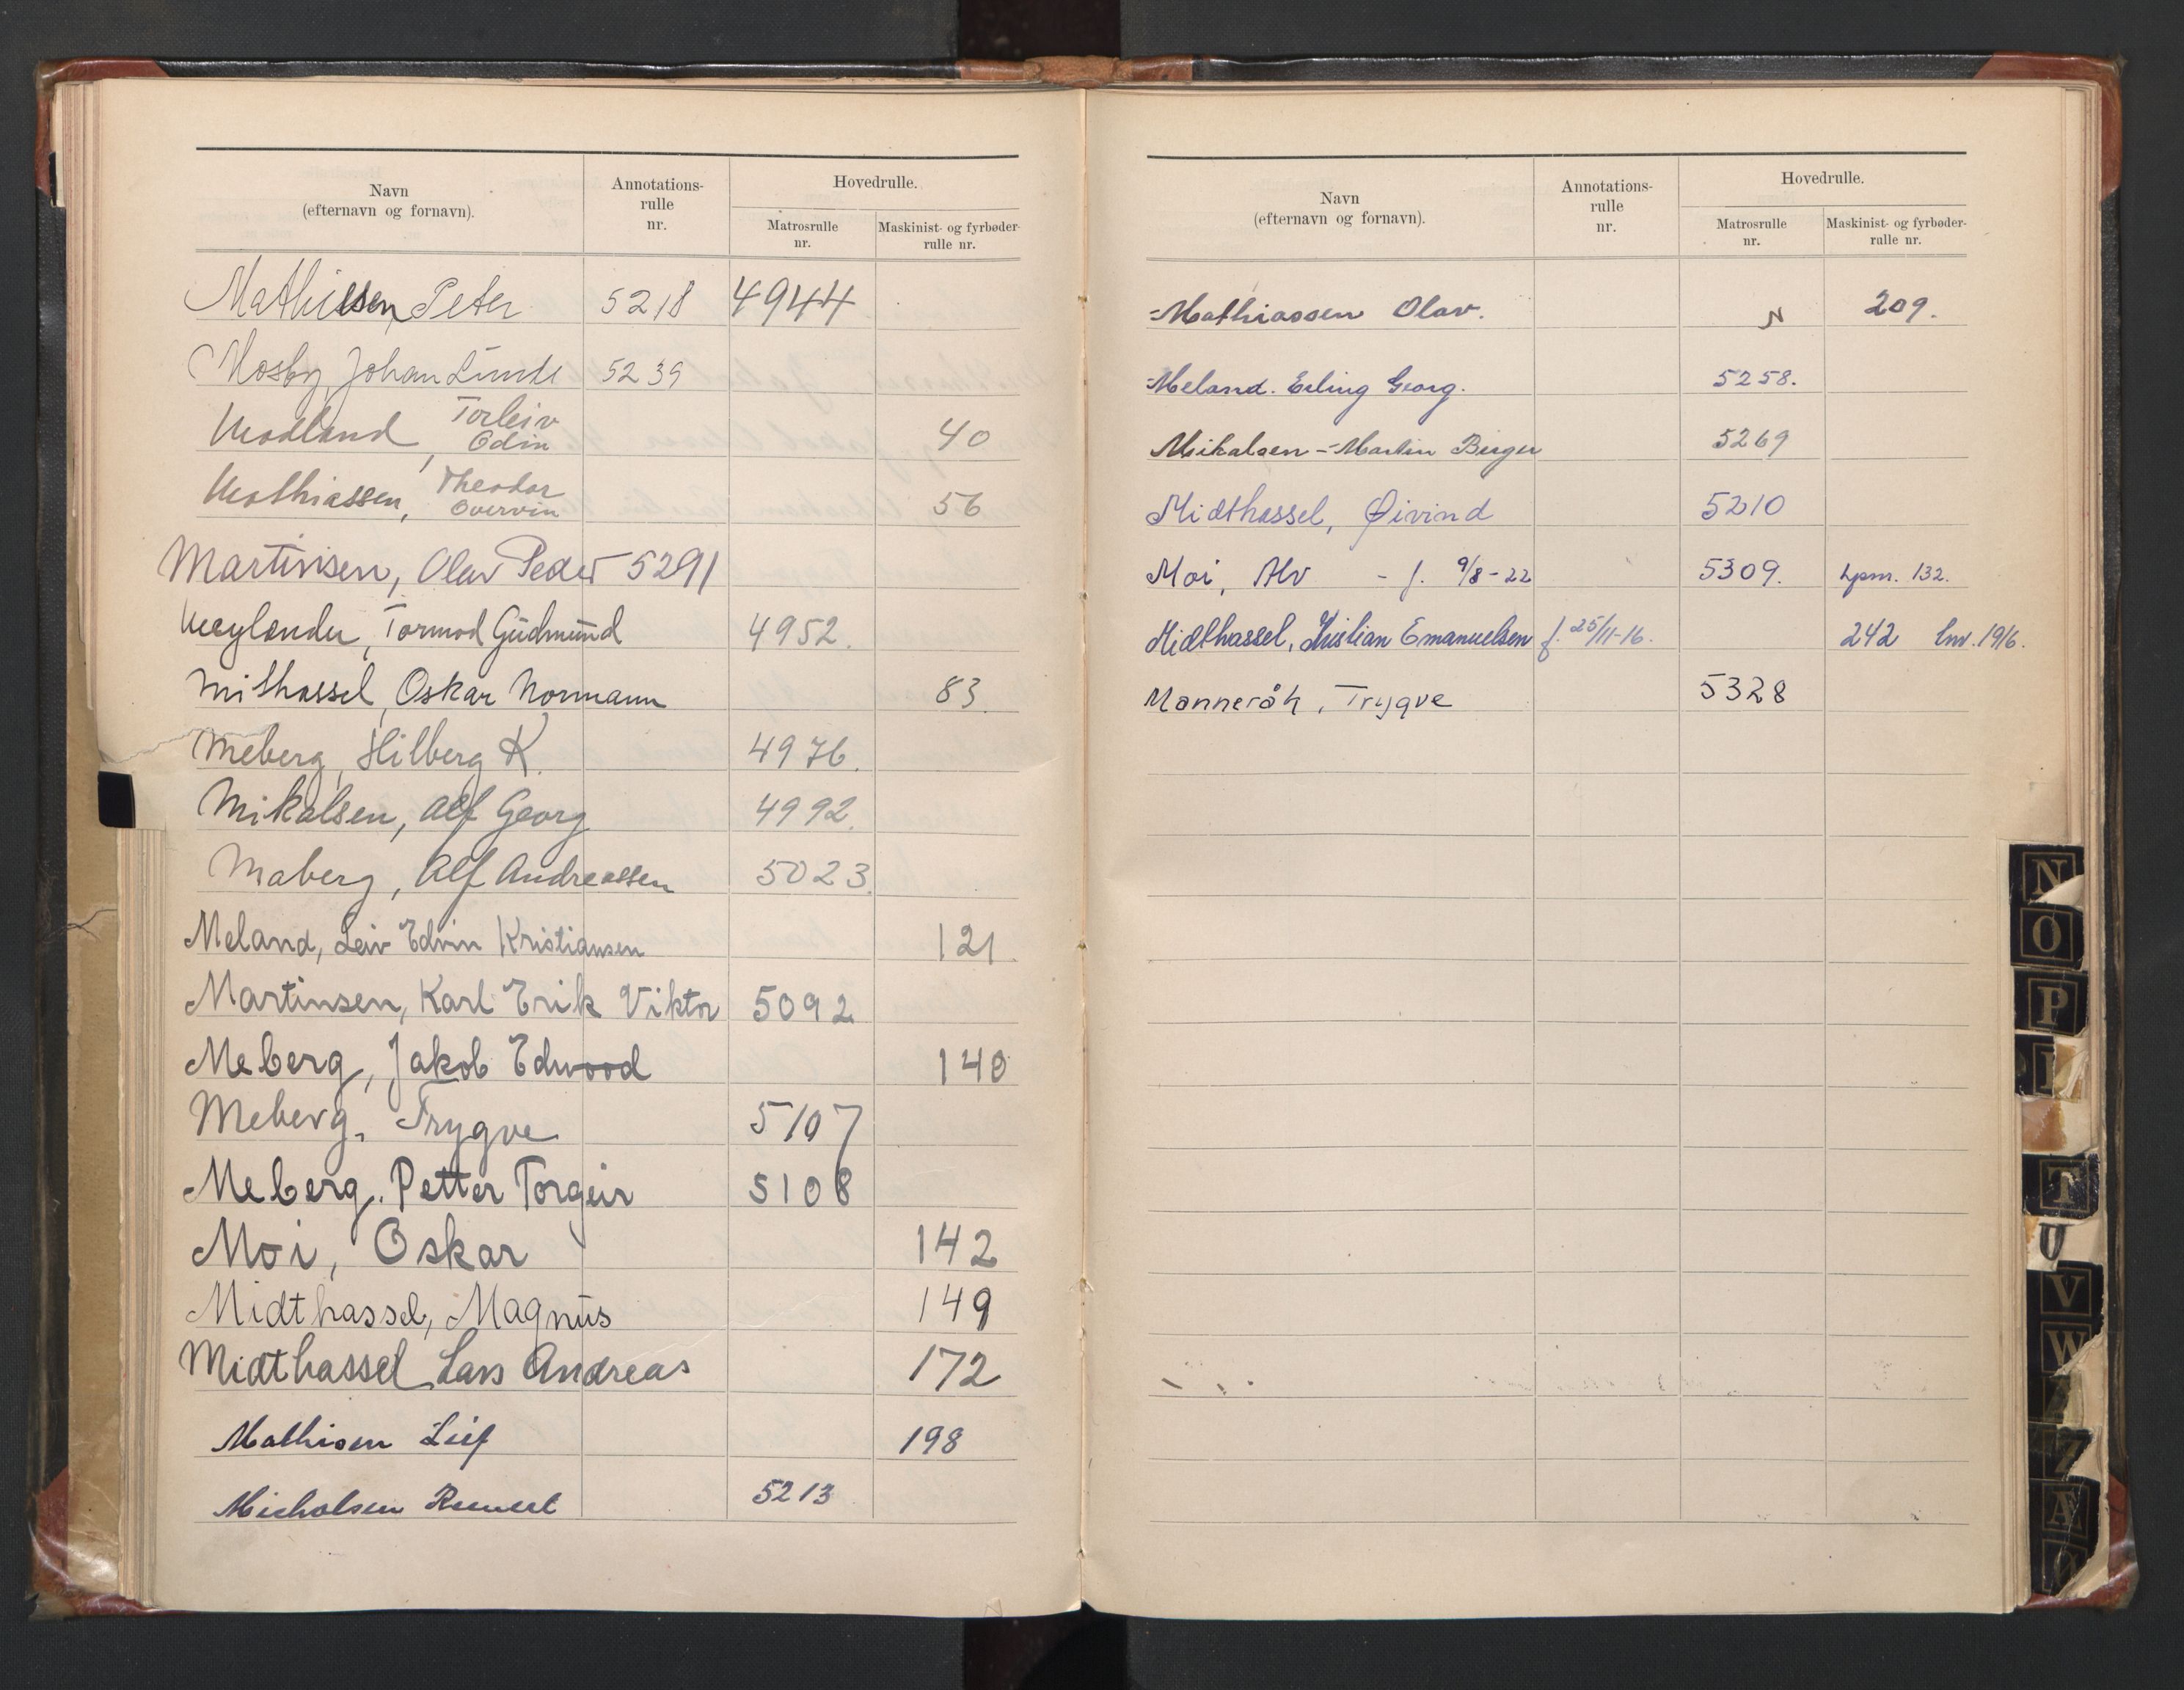 Navn
(efternavn og fornavn).
Annotations-
rulle
nr.
Hovedrulle.
Matrosrulle
nr.
Maskinist- og fyrbøder-
rulle nr.
Mathissen, Peter 5218 4944
Mosby, Johan Linde 5239
Modland, Torleiv Odin 40
Mathiassen, Theodor Overvin 56
Martinsen, Olav Peder 5291
Meylander, Tormod Gudmund 4952.
Mithassel, Oskar Normann 83.
Meberg, Hilberg K. 4976.
Mikalsen, Alf Georg 4992.
Maberg, Alf Andreassen 5023.
Meland, Leiv Edvin Kristiansen 121.
Martinsen, Karl Erik Viktor 5092
Meberg, Jakob Edwood 140
Meberg, Trygve 5107
Meberg, Petter Torgeir 5108
Moi, Oskar 142
Midthassel, Magnus 149
Midthassel, Lars Andreas 172
Mathisen Leif 198
Michalsen Reinert 5213
Navn
(efternavn og fornavn).
Annotations-
rulle
nr.
Hovedrulle.
Matrosrulle
nr.
Maskinist- og fyrbøder-
rulle nr.
Mathiassen Olav. N 209.
Meland. Erling Georg. 5258.
Mikalsen - Martin Birger 5269
Midthassel, Øivind 5210
Moi, Alv - f. 9/8-22 5309. hpm. 132.
Midthassel, Kristian Emanuelsen f. 25/11-16. 242 Inv. 1916.
Manneråk, Trygve 5328
N
O
P
T
U
V
W
Z
Æ